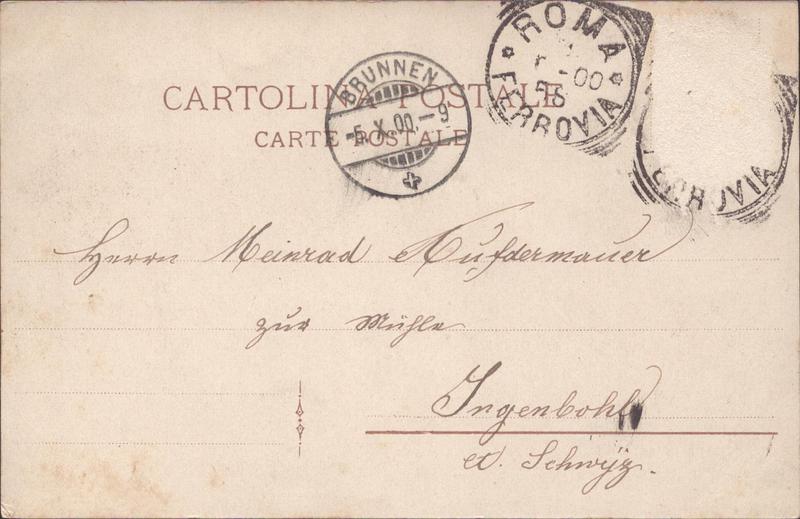 CARTOLINA POSTALE
CARTE POSTALE
BRUNNEN
-5.X.00.-9
ROMA
-00
FERROVIA
Herrn Meinrad Aufdermauer
zur Mühle
Ingenbohl
ct. Schwyz.